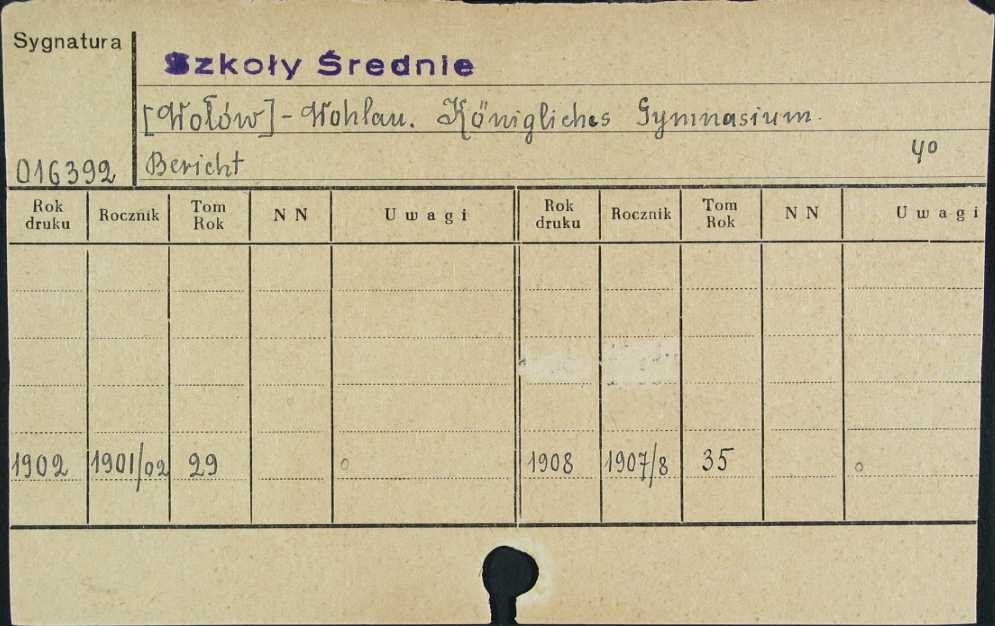 Sygnatura
Szkoły Średnie
[Wołów] - Wohlau. Königliches Gymnasium.
016392 Bericht 40
Rok druku Rocznik Tom Rok NN Uwagi Rok druku Rocznik Tom Rok NN Uwagi
1902 1901/02 29 o 1908 1907/8 35 o